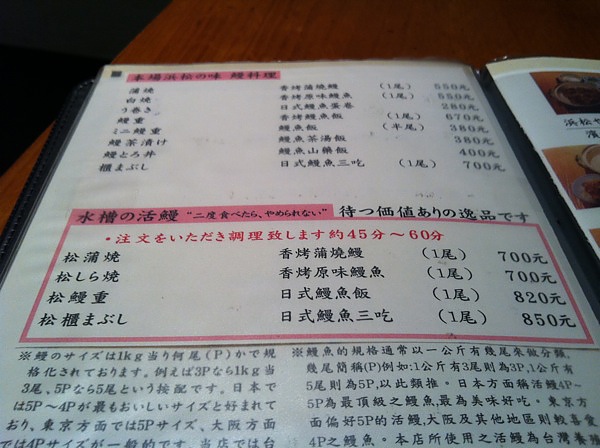 本場浜松の味 鰻料理
蒲焼 香烤蒲燒鰻 (1尾) 550元
白焼 香烤原味鰻魚 (1尾) 550元
う巻き 日式鰻魚蛋卷 280元
鰻重 香烤鰻魚飯 (1尾) 670元
ミニ鰻重 鰻魚飯 (半尾) 380元
鰻茶漬け 鰻魚茶湯飯 380元
鰻とろ丼 鰻魚山藥飯 400元
櫃まぶし 日式鰻魚三吃 (1尾) 700元
水槽の活鰻 "二度食べたら、やめられない" 待つ価値ありの逸品です
・注文をいただき調理致します約45分～60分
松蒲焼 香烤蒲燒鰻 (1尾) 700元
松しら焼 香烤原味鰻魚 (1尾) 700元
松鰻重 日式鰻魚飯 (1尾) 820元
松櫃まぶし 日式鰻魚三吃 (1尾) 850元
※鰻のサイズは1kg当り何尾(P)かで規
格化されております。例えば3Pなら1kg当
3尾、5Pなら5尾という按配です。日本で
は5P～4Pが最もおいしいサイズと好まれて
おり、東京方面では5Pサイズ、大阪方面
では4Pサイズが一般的です。当店では台
※鰻魚的規格通常以一公斤有幾尾來做分類。
幾尾簡稱(P)例如:1公斤有3尾則為3P,1公斤有
5尾則為5P,以此類推。日本方面稱活鰻4P～
5P為最頂級之鰻魚,最為美味好吃。東京方
面偏好5P的活鰻,大阪及其他地區則較喜食
4P之鰻魚。本店所使用之活鰻為台灣養
浜松や